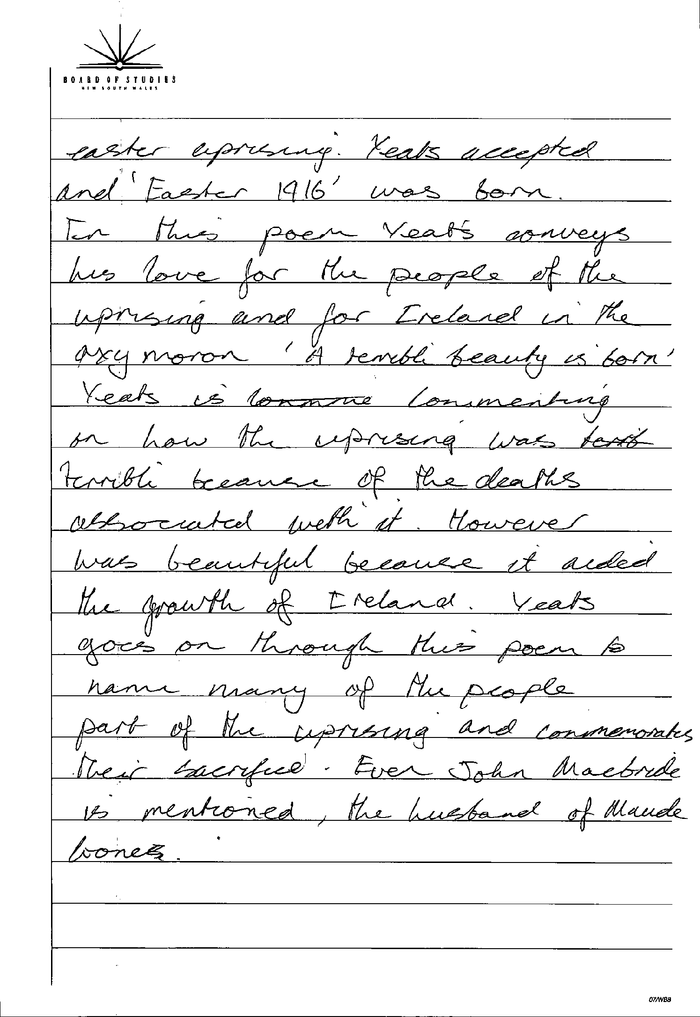 BOARD OF STUDIES
NEW SOUTH WALES
easter uprising. Yeats accepted
and 'Easter 1916' was born.
In this poem Yeats conveys
his love for the people of the
uprising and for Ireland in the
oxymoron 'A terrible beauty is born'
Yeats is commenting
on how the uprising was
terrible because of the deaths
associated with it. However
was beautiful because it aided
the growth of Ireland. Yeats
goes on through this poem to
name many of the people
part of the uprising and commemorates
their sacrifice. Even John Macbride
is mentioned, the husband of Maude
Gonne.
07/WBB